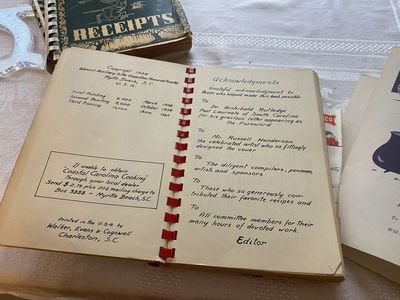 RECEIPTS
Copyright 1958
Women's Auxiliary to the Ocean View Memorial Hospital
Myrtle Beach, S.C.
U.S.A.
First Printing
March 1958
Second Printing
October 1958
Third Printing
June
If unable to obtain
Coastal Carolina Cooking
through your local dealer
Send $2.75 plus 20¢ mailing charge to
Box 3555 - Myrtle Beach, S.C.
Printed in the U.S.A. by
Walker, Evans & Cogswell
Charleston, S.C.
Acknowledgments
Grateful acknowledgment to
those who helped make this book possible
To
Dr. Archibald Rutledge
Poet Laureate of South Carolina
for his gracious letter appearing as
the Foreword
To
Mr. Russell Henderson
the celebrated artist who so fittingly
designed the cover
To
The diligent compilers, penmen,
artists and sponsors
To
Those who so generously con-
tributed their favorite recipes and
To
All committee members for their
many hours of devoted work.
Editor